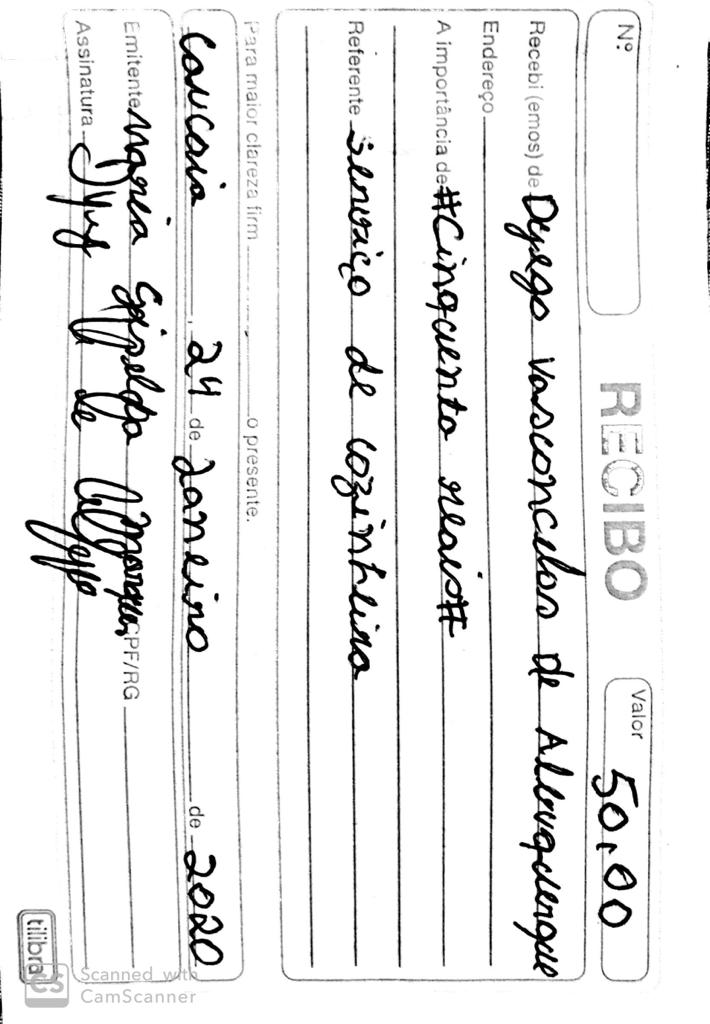 Nº
RECIBO
Valor 50,00
Recebi (emos) de Dyego Vasconcelos de Albuquerque
Endereço
A importância de #Cinquenta reais#
Referente Serviço de cozinheira
Para maior clareza firm o presente.
Caucaia, 24 de Janeiro de 2020
Emitente Maria Marques CPF/RG
Assinatura
tilibra
CS Scanned with
CamScanner